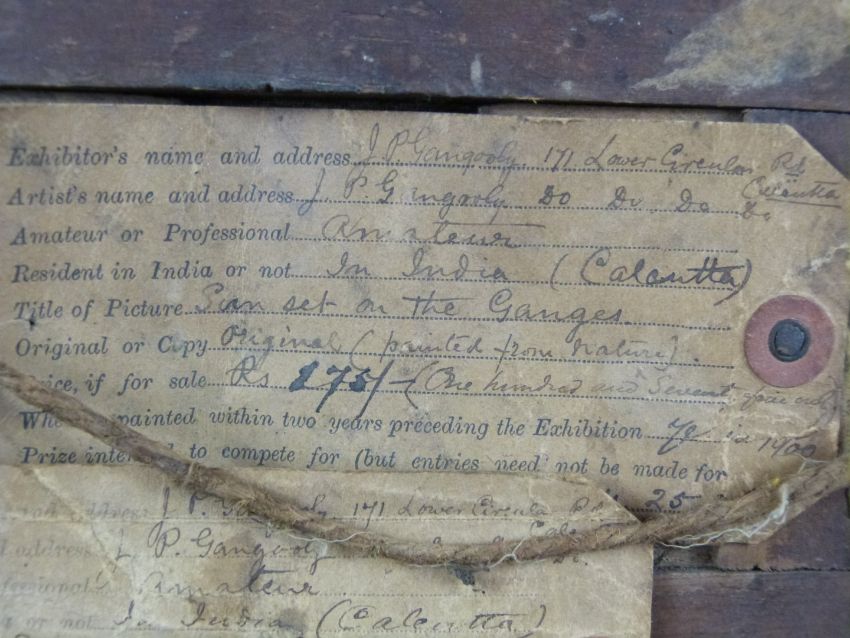 Exhibitor's name and address J. P. Gangooly. 171 Lower Circular Rd
Calcutta
Artist's name and address J. P Gangooly Do Do Do Do
Amateur or Professional Amateur
Resident in India or not In India (Calcutta)
Title of Picture Sun set on the Ganges.
Original or Copy Original (painted from nature).
Price, if for sale Rs 175/- (One hundred and Seventy five only
painted within two years preceding the Exhibition in 1900
Prize to compete for (but entries need not be made for
25
address J. P. Gangooly 171 Lower Circular Rd
address J. P. Gangooly Do.
Amateur.
or not In India (Calcutta)